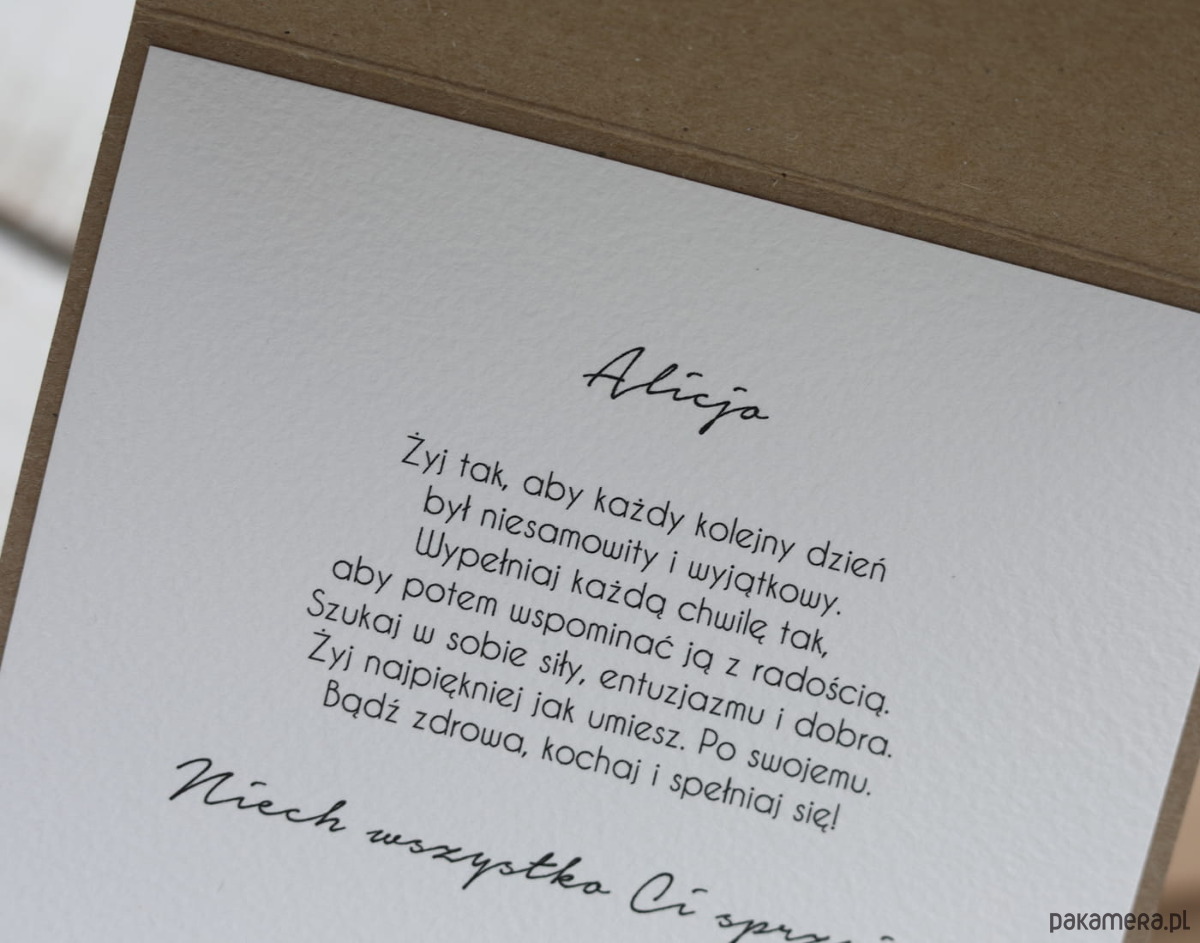 Alicja
Żyj tak, aby każdy kolejny dzień
był niesamowity i wyjątkowy.
Wypełniaj każdą chwilę tak,
aby potem wspominać ją z radością.
Szukaj w sobie siły, entuzjazmu i dobra.
Żyj najpiękniej jak umiesz. Po swojemu.
Bądź zdrowa, kochaj i spełniaj się!
Niech wszystko Ci
pakamera.pl